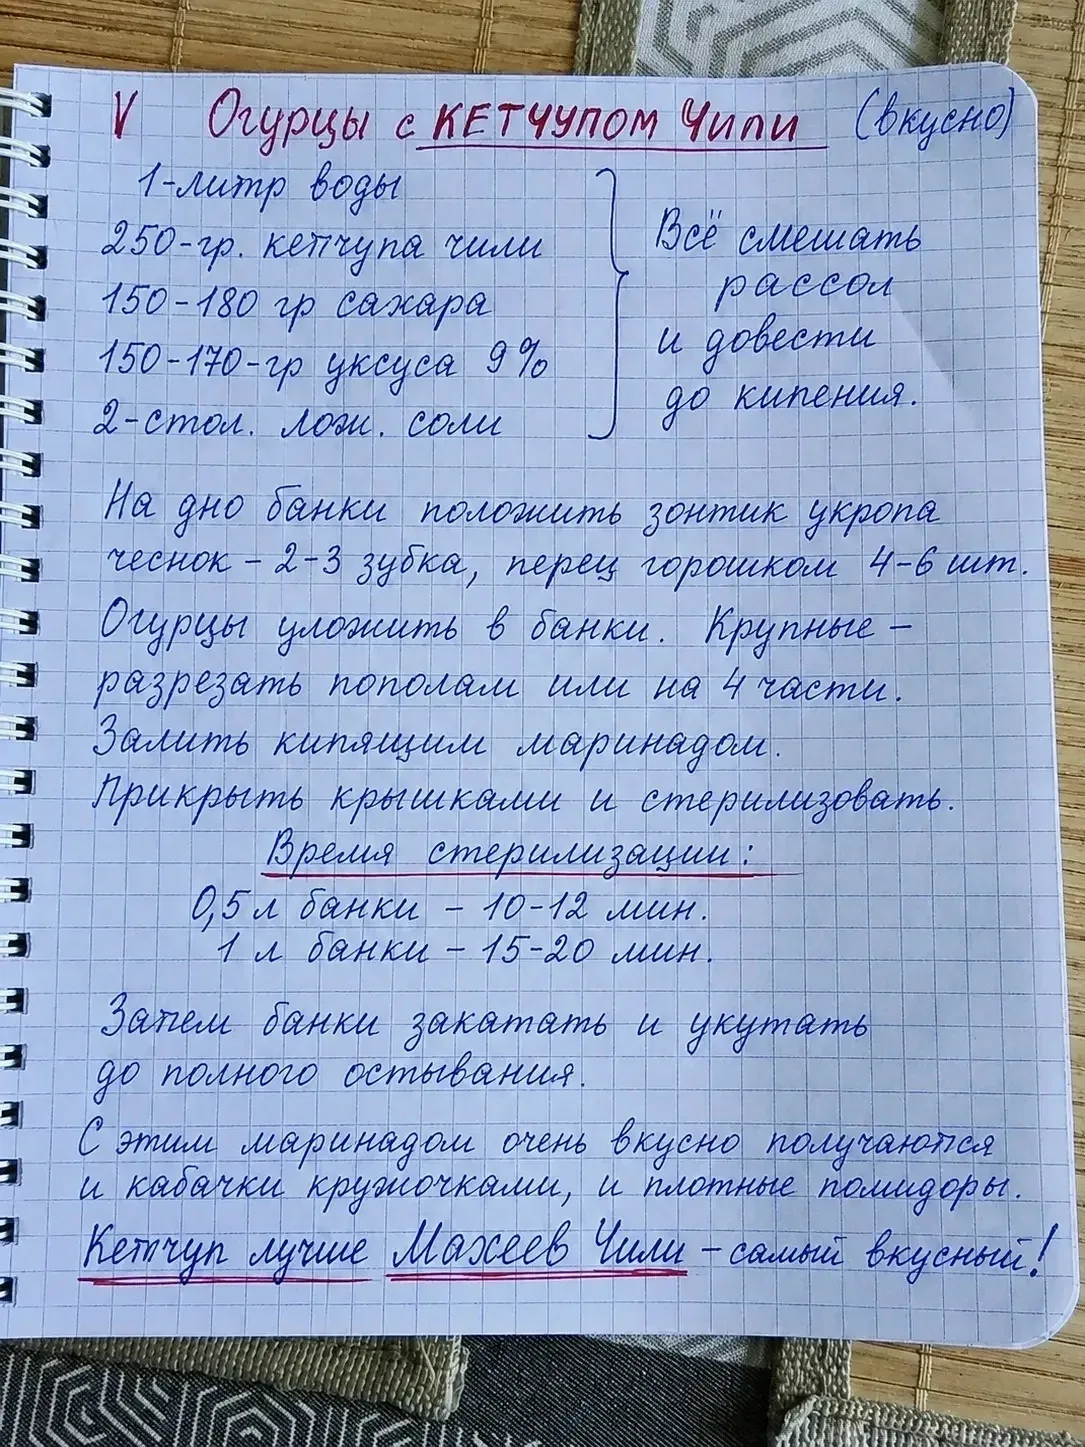 V Огурцы с КЕТЧУПОМ Чили (вкусно)
1-литр воды
250-гр. кетчупа чили
150-180 гр сахара
150-170-гр уксуса 9%
2-стол. лож. соли
Всё смешать
рассол
и довести
до кипения.
На дно банки положить зонтик укропа
чеснок - 2-3 зубка, перец горошком 4-6 шт.
Огурцы уложить в банки. Крупные -
разрезать пополам или на 4 части.
Залить кипящим маринадом.
Прикрыть крышками и стерилизовать.
Время стерилизации:
0,5 л банки - 10-12 мин.
1 л банки - 15-20 мин.
Затем банки закатать и укутать
до полного остывания.
С этим маринадом очень вкусно получаются
и кабачки кружочками, и плотные помидоры.
Кетчуп лучше Махеев Чили - самый вкусный!